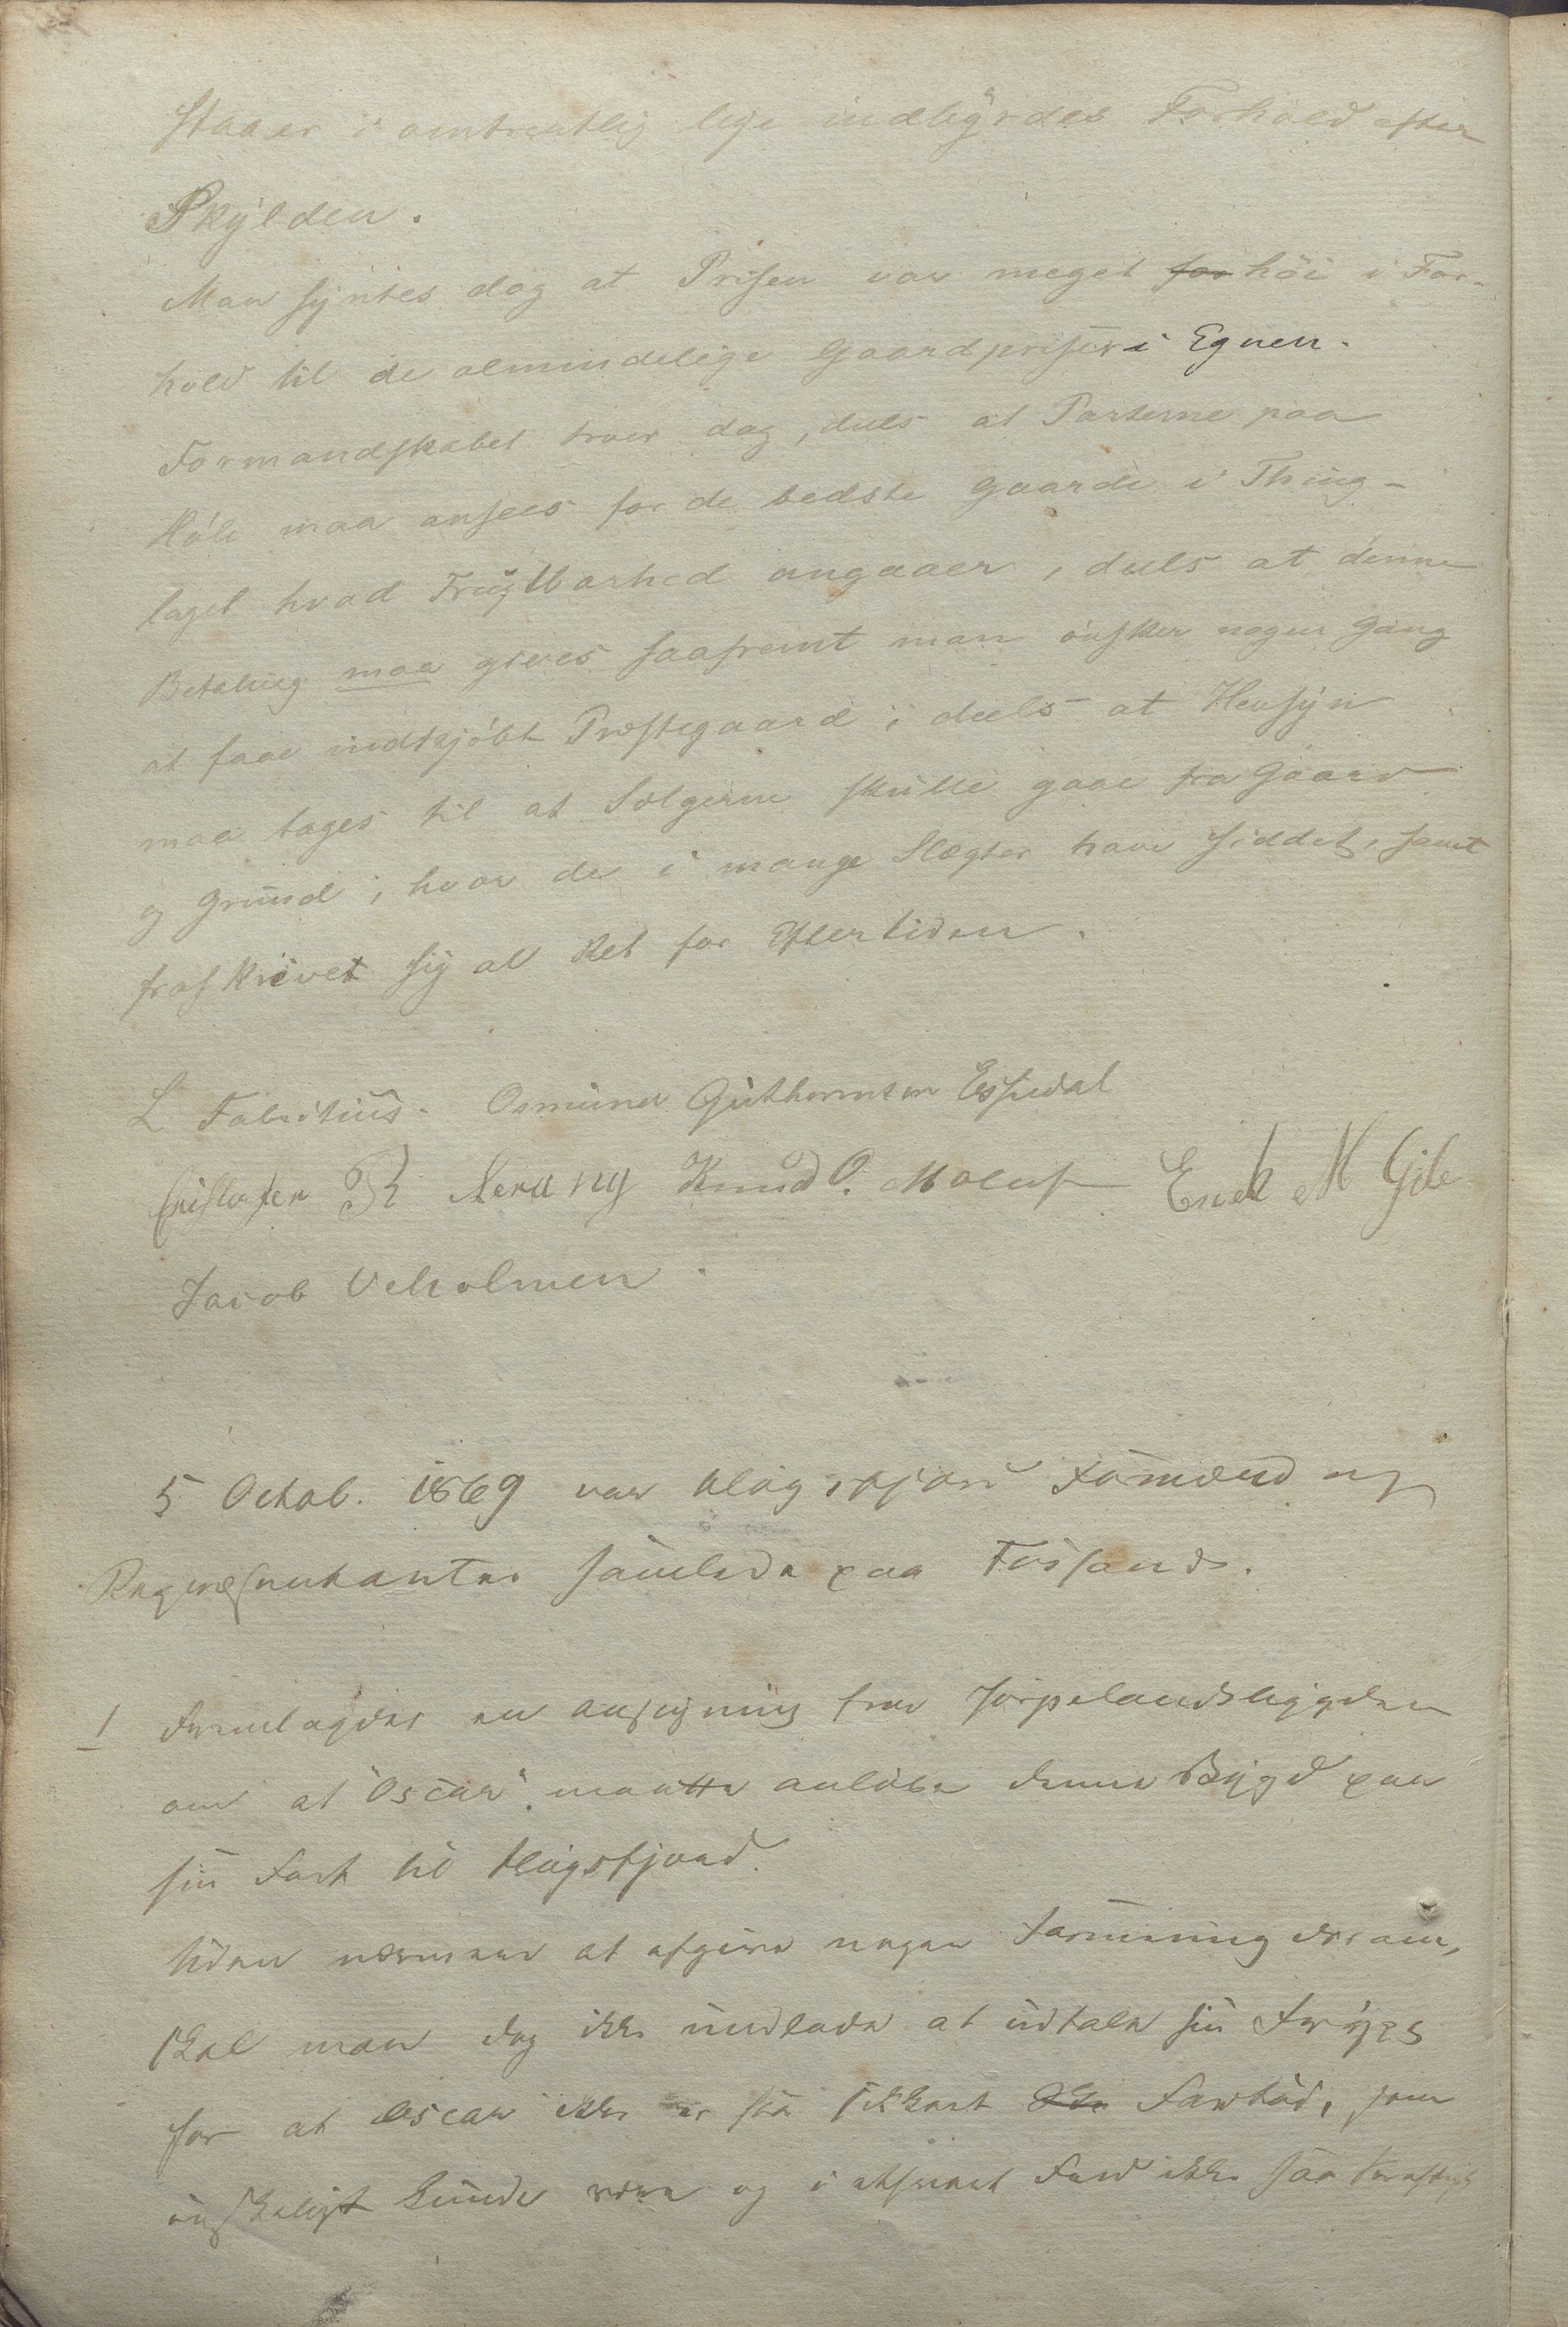 staaer i omtrentlig lige indbyrdes Forhold efter
Skylden.
Man syntes dog at Prisen var meget for höi i For-
hold til de almindelige Gaardpriser i Egnen.
Formandskabet troer dog, deels at Parterne paa
Höle maa ansees for de bedste Gaarde i Thing-
laget hvad Frugtbarhed angaaer, deels at denne
Betaling maa gives saafremt man önsker nogen Gang
at faae indkjöbt Præstegaard i deels at Hensyn
maa tages til at Sælgerne skulle gaae fra Gaard
og Grund, hvor de i mange Slægter have siddet, samt
fraskrivet sig al Ret for Eftertiden.
L Fabritius. Osmund Guthormsen Espedal
Cristofer R Nerung Knud O. Meling Erick M Gile
Jacob Veholmen.
5 Octob. 1869 var Högsfjord Formænd og
Repræsentanter samlede paa Fossand.
1 Fremlagdes en Ansøgning fra Jörpelandsbygden
om at "Oscar" maatte anlöbe denne Bygd paa
sin Fart til Högsfjord.
Uden nærmere at afgive nogen Formening derom,
skal man dog ikke undlade at udtale sin Frygt
for at Oscar ikke er saa sikkert Fartöi, som
önskeligt kunde være og i ethvert Fald ikke saa kraftigt